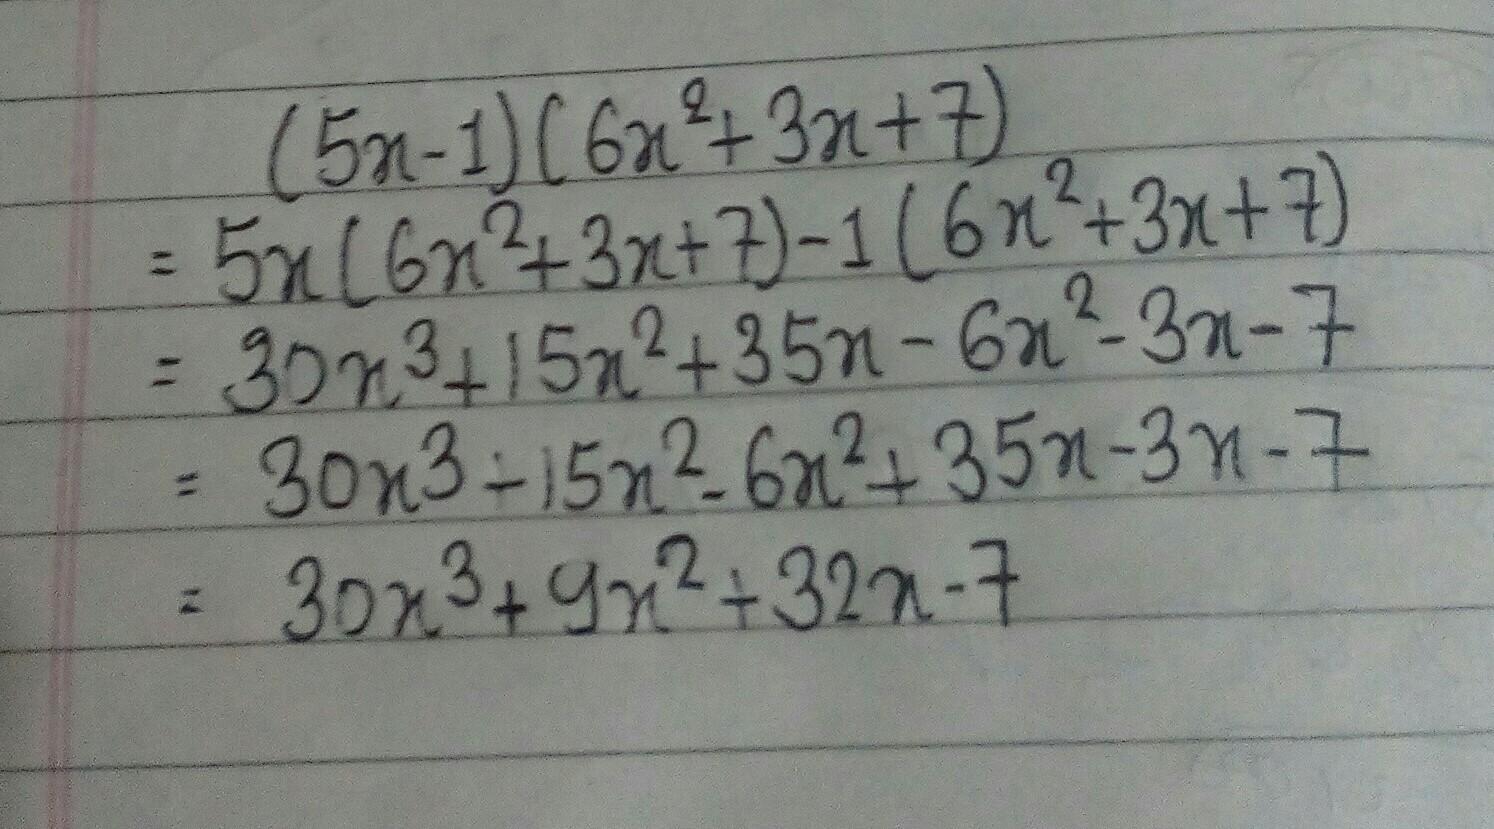 (5x-1)(6x²+3x+7)
= 5x(6x²+3x+7)-1(6x²+3x+7)
= 30x³+15x²+35x-6x²-3x-7
= 30x3+15x²-6x²+35x-3x-7
= 30x³+9x²+32x-7